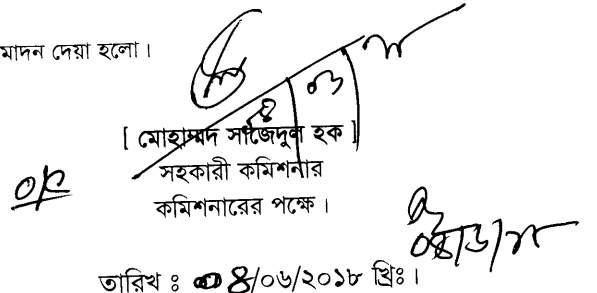 মাদন দেয়া হলো।
[ মোহাম্মদ সাজেদুল হক ]
সহকারী কমিশনার
কমিশনারের পক্ষে।
তারিখ ঃ ০৪/০৬/২০১৮ খ্রিঃ।